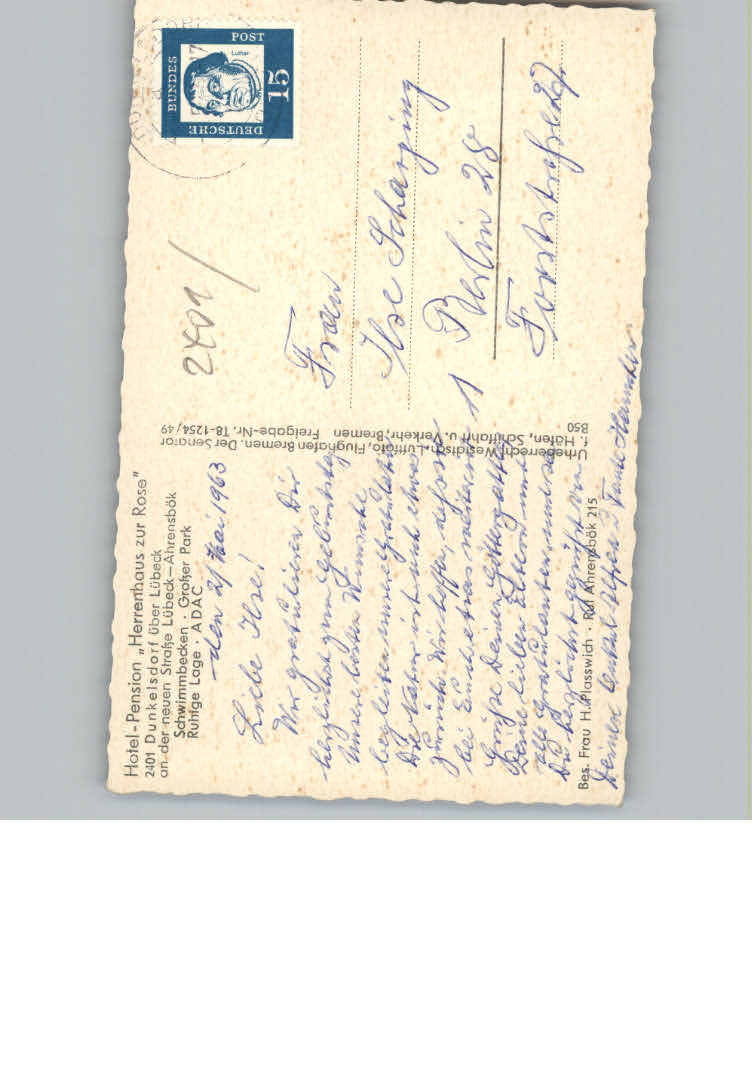 Hotel-Pension „Herrenhaus zur Rose"
2401 Dunkelsdorf über Lübeck
an der neuen Straße Lübeck—Ahrensbök
Schwimmbecken · Großer Park
Ruhige Lage · ADAC
den 21 Mai 1963
Liebe Ilse!
Wir gratulieren Dir
herzlichst zum Geburtstag
Unsere besten Wünsche
begleiten unsere Gratulation
Die Natur ist noch etwas
zurück. Wir hoffen, daß es
bei Euch etwas
Grüße Deinen Göttergatten
Deine lieben Eltern und
alle Gratulanten und sei
Du herzlichst gegrüßt von
Deinen Onkel und Tante
Bes. Frau H. Plasswich · Ruf Ahrensbök 215
Urheberrecht Westdisch. Luftfoto, Flughafen Bremen. Der Senator
f. Häfen, Schiffahrt u. Verkehr, Bremen Freigabe-Nr. T8-1254/49
B50
DEUTSCHE
BUNDES
POST
15
Luther
2401/
Frau
Ilse Scharping
1 Berlin 28
Forststraße